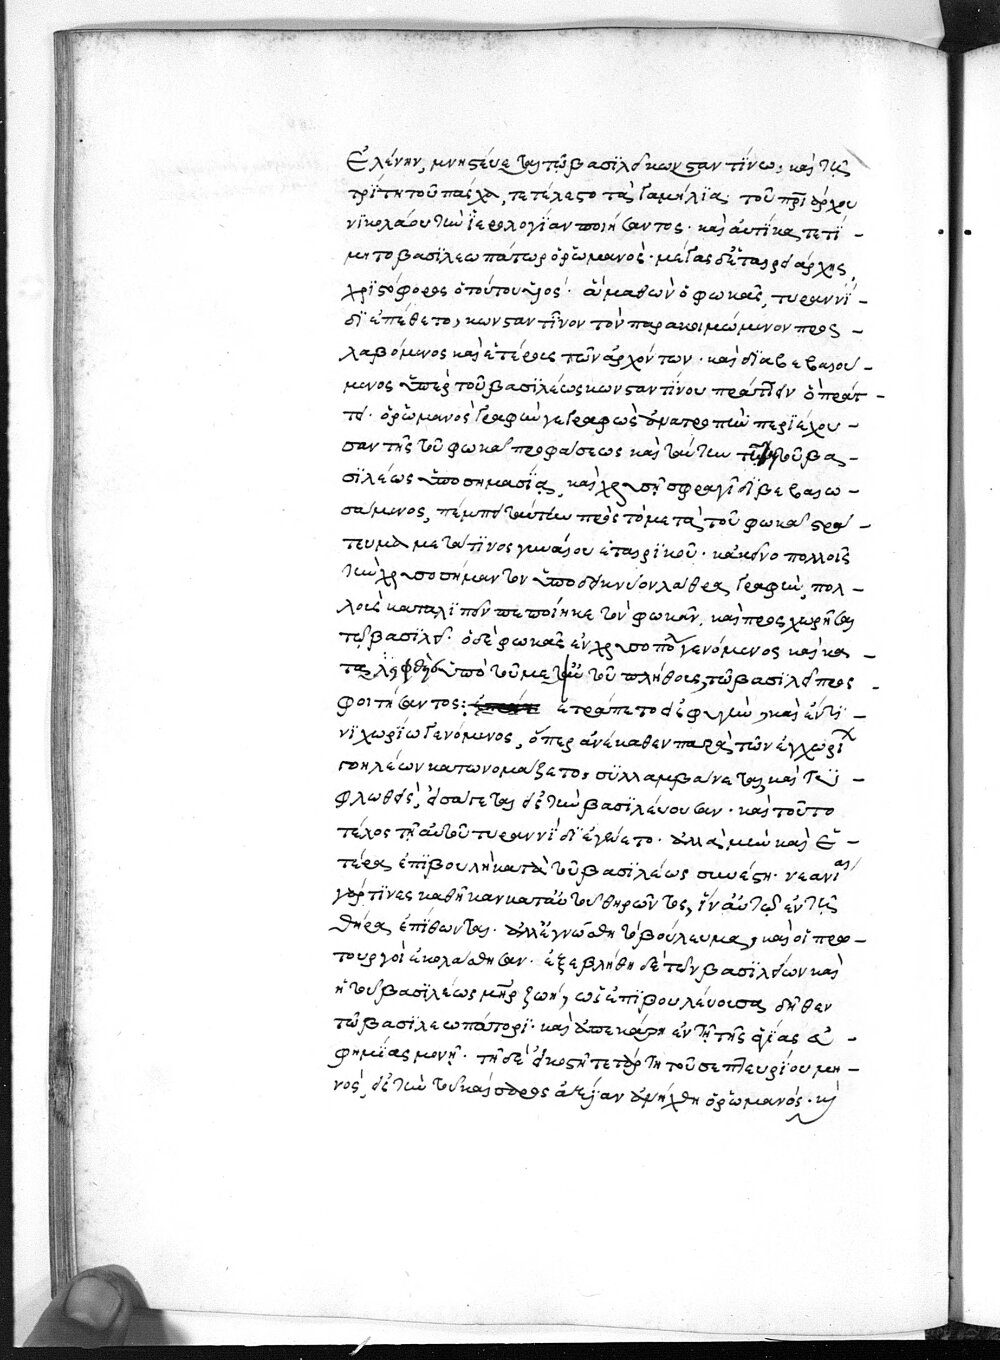 Ἑλένην, μνηστεύεται τῷ βασιλεῖ κωνσταντίνω, καὶ τῇ
τρίτῃ τοῦ πάσχα, τετέλεστο τὰ γαμήλια· τοῦ πριάρχου
νικολάου τὴν ἱερολογίαν ποιήσαντος· καὶ αὐτίκα τετί-
μητο βασιλεωπάτωρ ὁ ῥωμανός· μέγας δὲ ἑταιρειάρχης,
χριστόφορος ὁ τούτου υἱός· ἃ μαθὼν ὁ φωκᾶς, τυραννί-
δι ἐπέθετο, κωνσταντῖνον τὸν παρακοιμώμενον προς-
λαβόμενος καὶ ἑτέρους τῶν ἀρχόντων· καὶ διαβεβαιού-
μενος ὑπὲρ τοῦ βασιλέως κωνσταντίνου πράττειν ὃ πράτ-
τει· ὁ ῥωμανὸς γραφὴν γεγραφὼς ἀνατροπὴν περιέχου-
σαν τῆς τοῦ φωκᾶ προφάσεως καὶ ταύτην τοῦ βα-
σιλέως ὑποσημασίᾳ, καὶ χρυσῇ σφραγῖδι βεβαιω-
σάμενος, πέμπει ταύτην πρὸς τὸ μετὰ τοῦ φωκᾶ στρά-
τευμα μετά τινος γυναίου ἑταιρικοῦ· κἀκεῖνο πολλοῖς
τὴν χρυσοσήμαντον ὑποδεικνύον λάθρα γραφὴν, πολ-
λοὺς καταλιπεῖν πεποίηκε τὸν φωκᾶν, καὶ προςχωρῆσαι
τῷ βασιλεῖ· ὁ δὲ φωκᾶς ἐν χρυσοπόλ γενόμενος καὶ κα-
ταλειφθεὶς ὑπὸ τοῦ μετ αὐτοῦ πλήθους, τῷ βασιλεῖ προς
φοιτήσαντος· ἐτράπετο εἰς φυγὴν, καὶ ἔν τι-
νι χωρίω γενόμενος, ὅπερ ἀνέκαθεν παρὰ τῶν ἐγχωρί
γοηλέων κατωνομάζετο, συλλαμβάνεταί, καὶ τυ-
φλωθεὶς, εἰσάγεται εἰς τὴν βασιλεύουσαν· καὶ τοῦτο
τέλος τῇ αὐτοῦ τυραννίδι ἐγένετο· ἀλλὰ μὴν καὶ ἑ-
τέρα ἐπιβουλὴ κατὰ τοῦ βασιλέως συνέστη· νεανίαι
γάρ τινες καθῆκαν κατ αὐτοῦ θηρῶντες, ἵν αὐτῷ ἐν τῇ
θήρα ἐπίθωνται· ἀλλ ἐγνώσθη τὸ βούλευμα, καὶ οἱ πρω-
τουργοὶ ἐκολάσθησαν· ἐξεβλήθη δὲ τῶν βασιλείων καὶ
ἡ τοῦ βασιλέως μηρ ζωή, ὡς ἐπιβουλεύουσα δῆθεν
τῷ βασιλεωπάτορι· καὶ ἀπεκάρη ἐν τῇ τῆς ἁγίας εὐ-
φημίας μονῇ· τῇ δὲ εἰκοστῇ τετάρτη τοῦ σεπτευρίου μη-
νός, εἰς τὴν τοῦ καίσαρος ἀξίαν ἀνήχθη ὁ ῥωμανός· καὶ